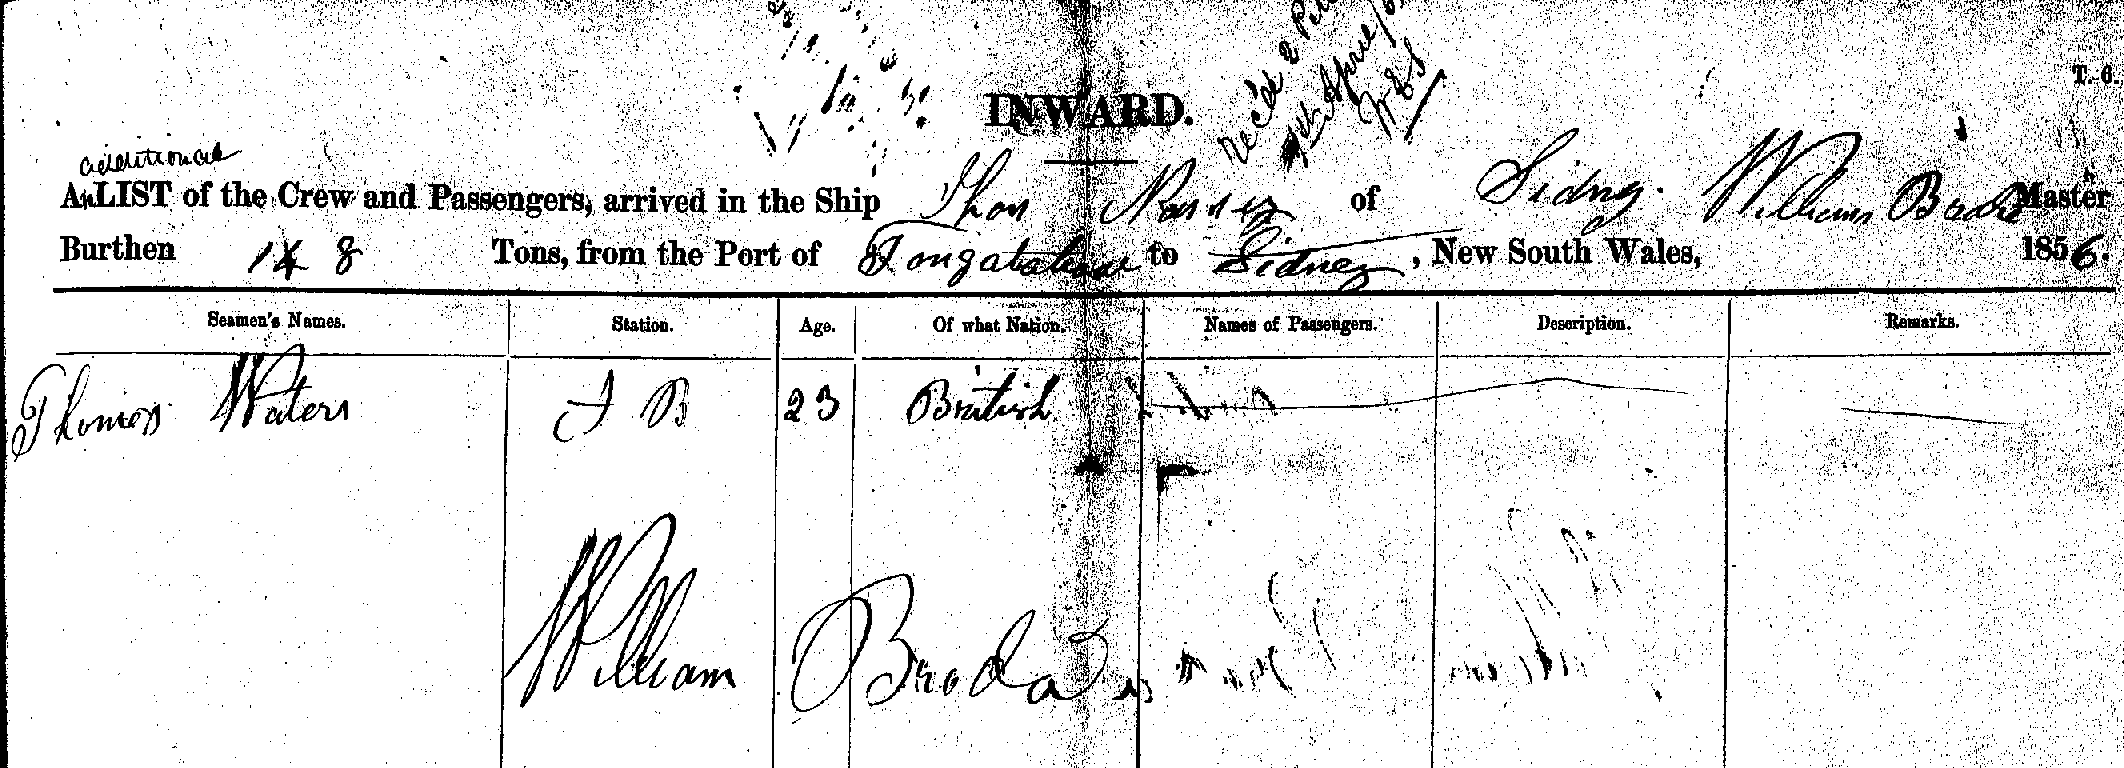 T. 6.
INWARD.
additional
A LIST of the Crew and Passengers, arrived in the Ship Thos of Sidny. William Master
Burthen 148 Tons, from the Port of Tongataboo to Sidney, New South Wales, 1856.
Seamen's Names. Station. Age. Of what Nation. Names of Passengers. Description. Remarks.
Thomas Waters A B 23 British
William